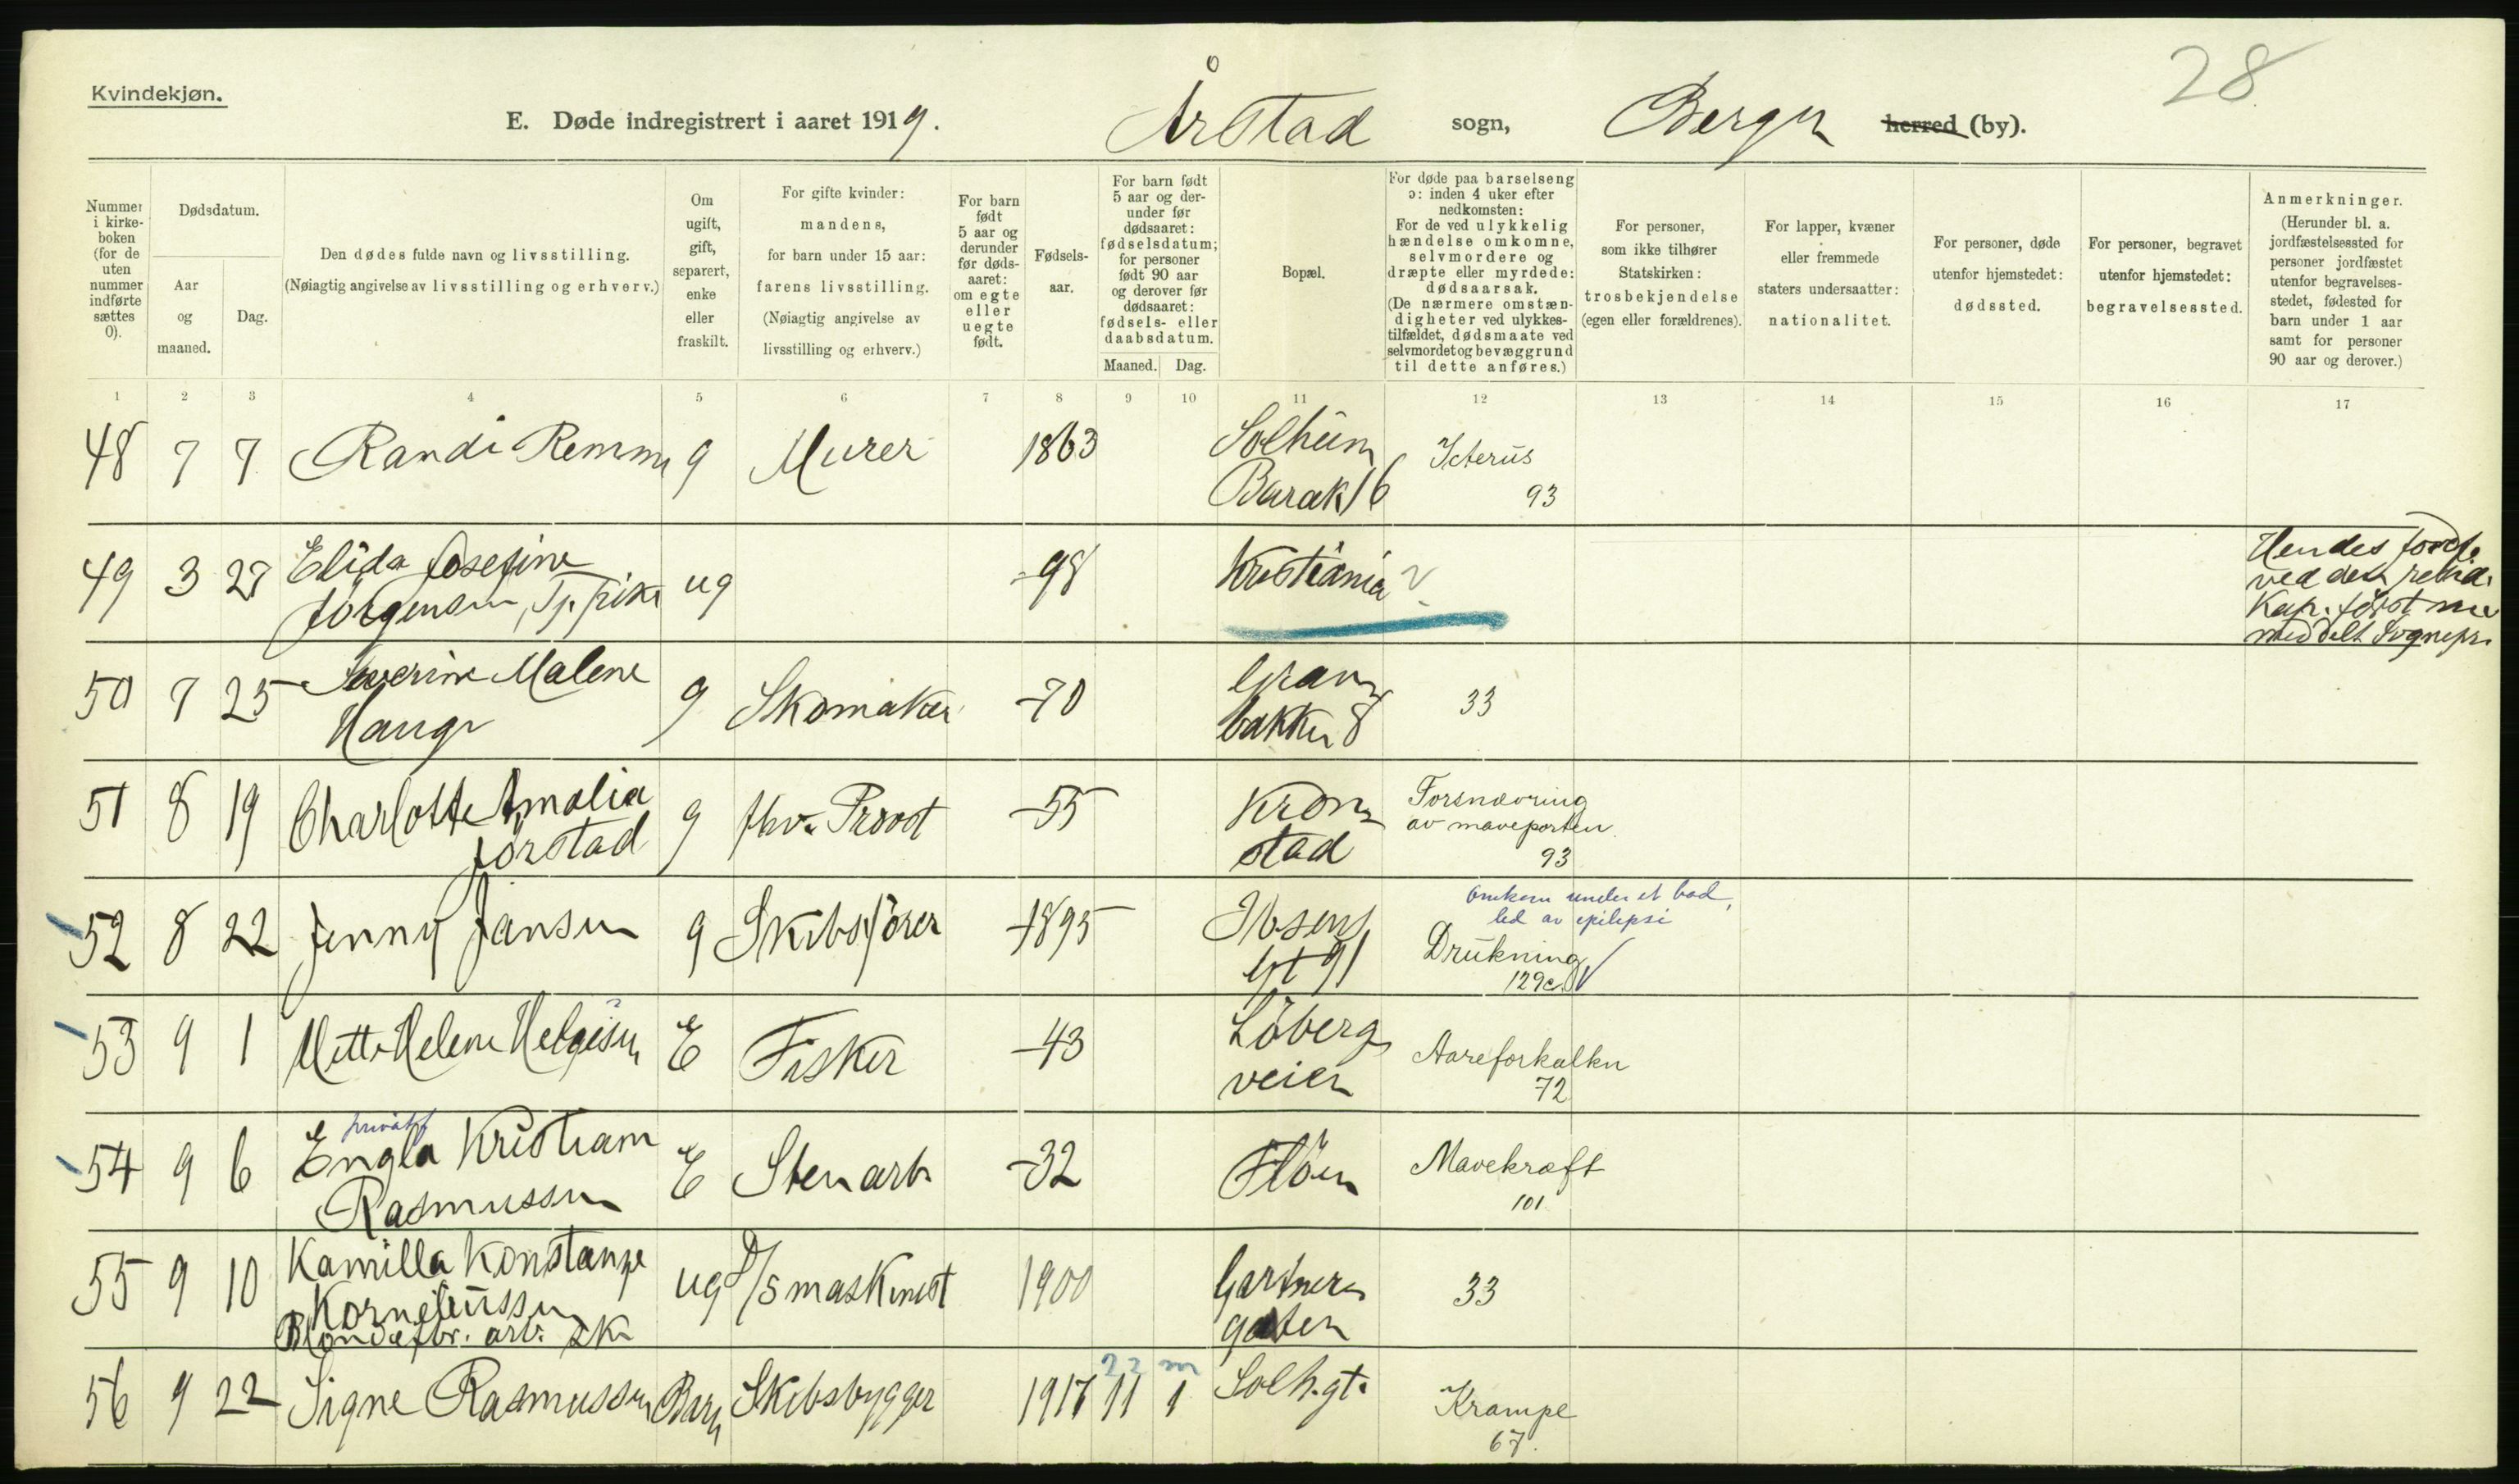 28
Kvindekjøn.
E. Døde indregistrert i aaret 1919.
Årstad sogn, Bergen herred (by).
Nummer i kirkeboken (for de uten nummer indførte sættes 0).
Dødsdatum.
Aar og maaned.
Dag.
Den dødes fulde navn og livsstilling.
(Nøiagtig angivelse av livsstilling og erhverv.)
Om ugift, gift, separert, enke eller fraskilt.
For gifte kvinder: mandens, for barn under 15 aar: farens livsstilling. (Nøiagtig angivelse av livsstilling og erhverv.)
For barn født 5 aar og derunder før dødsaaret: om egte eller uegte født.
Fødselsaar.
For barn født 5 aar og derunder før dødsaaret: fødselsdatum; for personer født 90 aar og derover før dødsaaret: fødsels- eller daabsdatum.
Maaned. Dag.
Bopæl.
For døde paa barselseng ɔ: inden 4 uker efter nedkomsten: For de ved ulykkelig hændelse omkomne, selvmordere og dræpte eller myrdede: dødsaarsak. (De nærmere omstændigheter ved ulykkestilfældet, dødsmaate ved selvmordet og bevæggrund til dette anføres.)
For personer, som ikke tilhører Statskirken: trosbekjendelse (egen eller forældrenes).
For lapper, kvæner eller fremmede staters undersaatter: nationalitet.
For personer, døde utenfor hjemstedet: dødssted.
For personer, begravet utenfor hjemstedet: begravelsessted.
Anmerkninger. (Herunder bl. a. jordfæstelsessted for personer jordfæstet utenfor begravelsesstedet, fødested for barn under 1 aar samt for personer 90 aar og derover.)
1 2 3 4 5 6 7 8 9 10 11 12 13 14 15 16 17
48 7 7 Randi Remme g Murer 1863 Solheim Barak 16 Icterus 93
49 3 27 Elida Josefine Jörgensen, Tj. pike ug -98 Kristiania
Hendes
ved det
Kap. först nu
meddelt Sognepr.
50 7 25 Severine Malene Hauge g Skomaker -70 Gran bakken 8 33
51 8 19 Charlotte Amalia Jörstad g fhv. Provst -55 Kron stad Forsnævring av maveporten 93
52 8 22 Jenny Jansen g Skibsförer -1895 Ibsens gt 91
Omkom under et bad, led av epilepsi
Drukning 129c
53 9 1 Mette Helene Helgesen E Fisker -43 Löberg veien Aareforkalkn 72
54 9 6 privat Engla Kristiane Rasmussen E Stenarb. -32 Flöen Mavekræft 101
55 9 10 Kamilla Konstanse Korneliussen Blondefbr. arb. sk ug D/S maskinist 1900 Gartner gaten 33
56 9 22 Signe Rasmussen Barn Skibsbygger 1917 11 1 Solh.gt. Krampe 67.
22 m